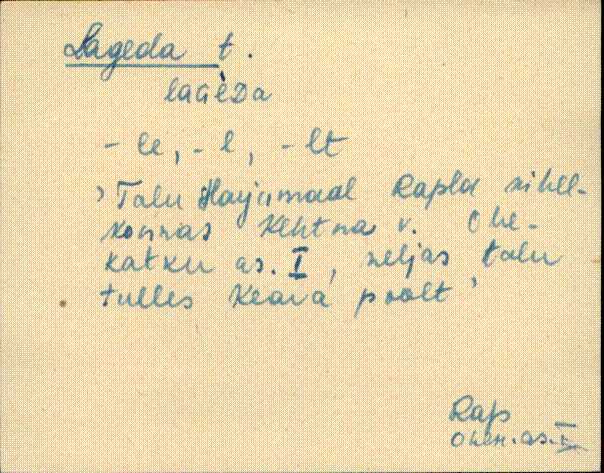 Lageda t.
laGèDa
- le, - l, - lt
' Talu Harjumaal Rapla kihel-
konnas Kehtna v. Ohe-
katku as. I, neljas talu
tulles Keava poolt '
Rap
Ohek. as. I